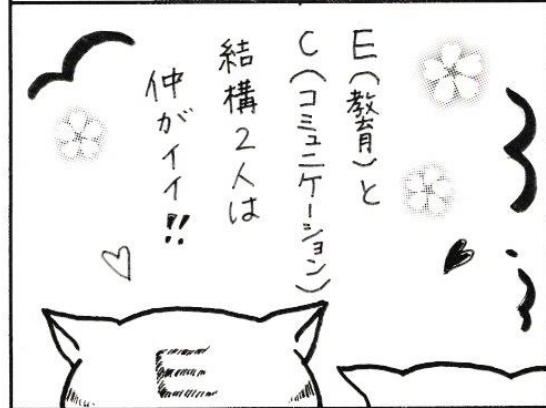 E(教育)と
C(コミュニケーション)
結構2人は
仲がイイ!!
E